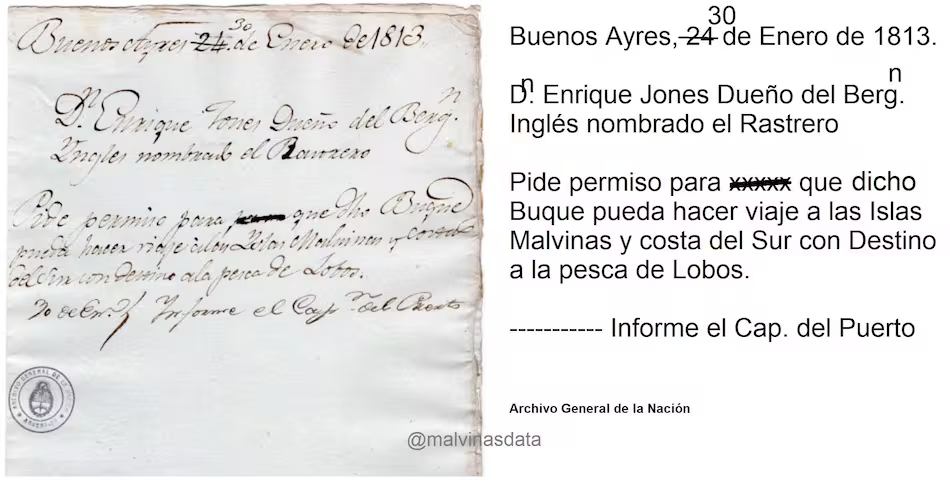 Buenos Ayres 24 30 de Enero de 1813.
Dn. Enrique Jones Dueño del Bergn.
Yngles nombrado el Rastrero
Pide permiso para que dho Buque
pueda hacer viaje a las Yslas Malvinas y costa
del Sur con destino a la pesca de Lobos.
30 de En.o Ynforme el Cap.n del Puerto
ARCHIVO GENERAL DE LA
@malvinasdata
30
Buenos Ayres, 24 de Enero de 1813.
n n
D. Enrique Jones Dueño del Berg.
Inglés nombrado el Rastrero
Pide permiso para xxxxx que dicho
Buque pueda hacer viaje a las Islas
Malvinas y costa del Sur con Destino
a la pesca de Lobos.
----------- Informe el Cap. del Puerto
Archivo General de la Nación